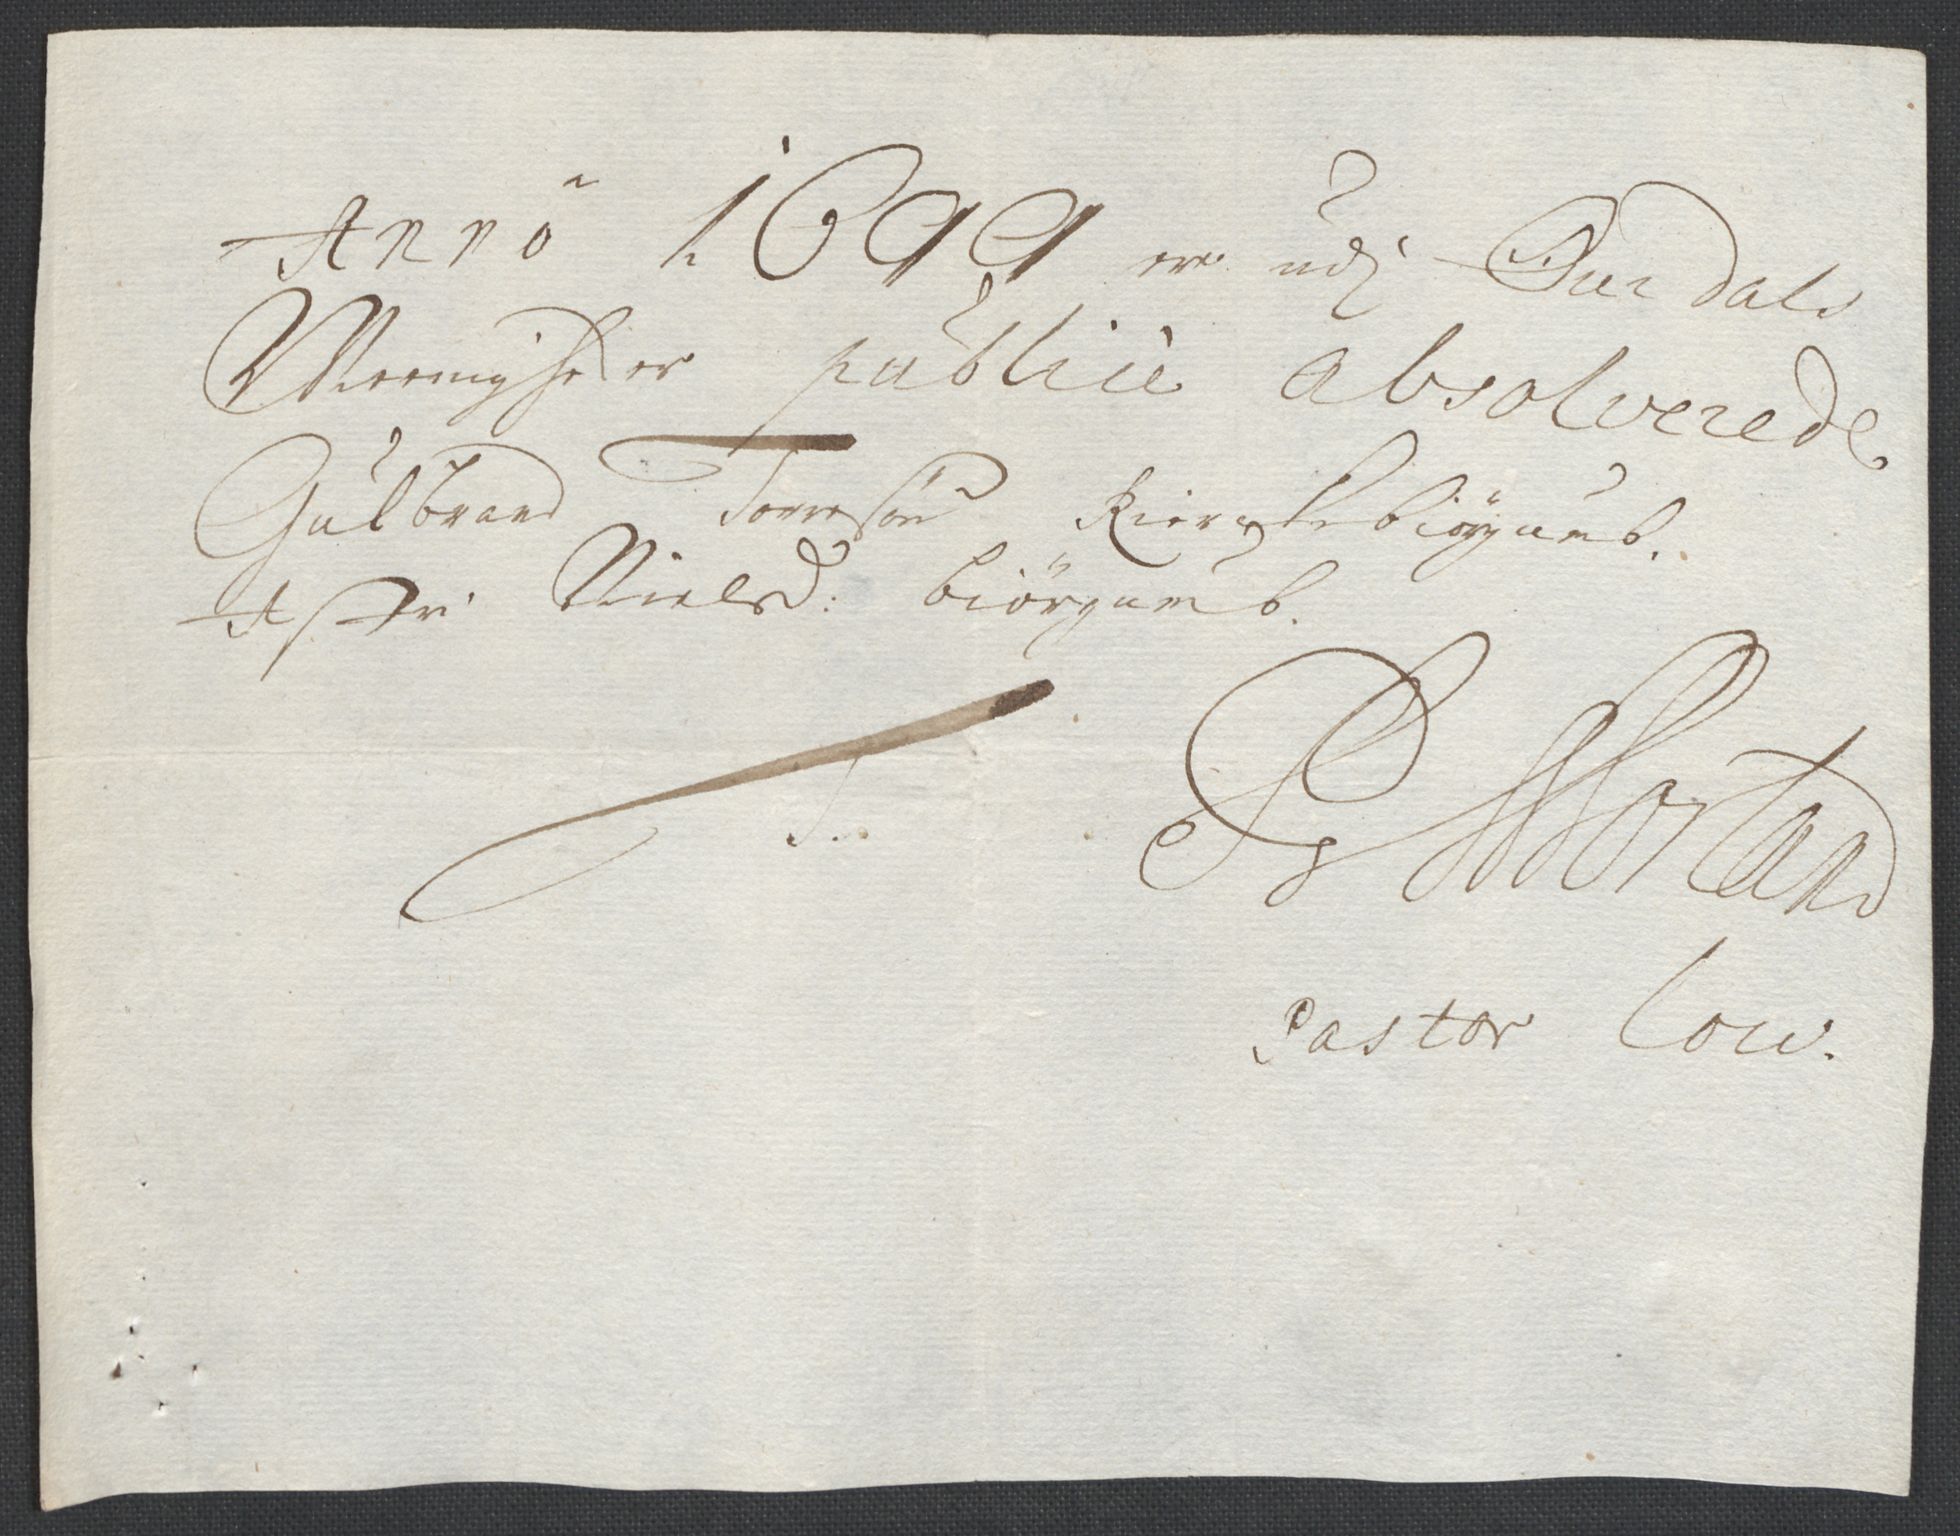 Anno 1699 ere udj Aurdals
Meenigheder publicè absolverede
Gulbrand Torresön Kierstebiörgumb.
Astri Nielsd: biörgumb.
Mortand
Pastor loci.